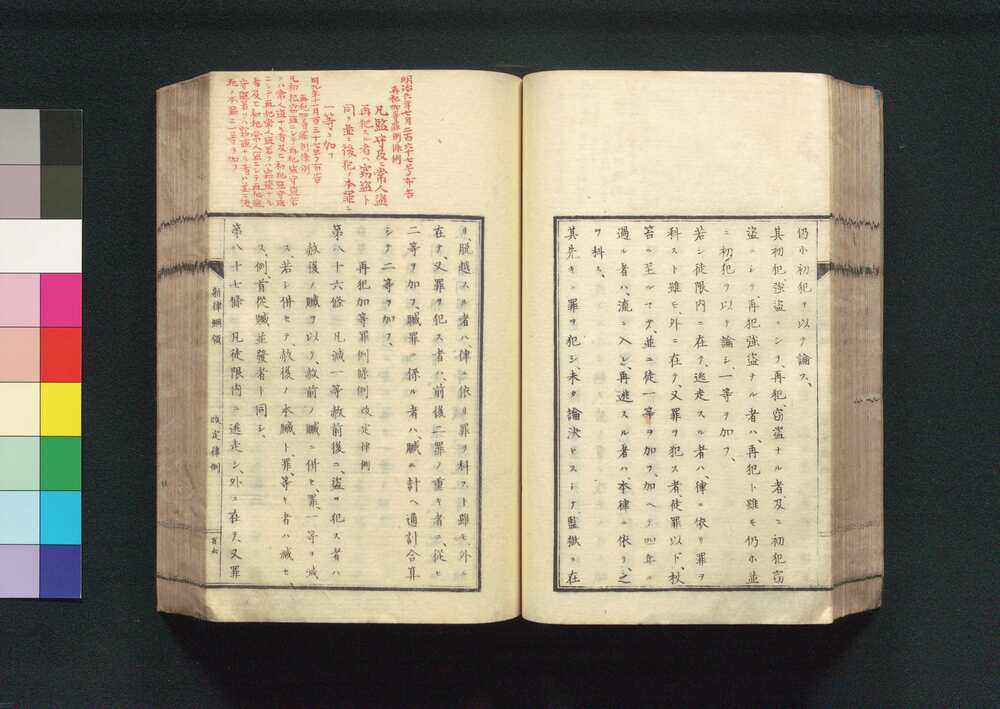 仍ホ初犯ヲ以テ論ス、
其初犯、強盗ニシテ、再犯、窃盗ナル者、及ヒ初犯窃
盗ニシテ、再犯強盗ナル者ハ、再犯ト雖モ仍ホ並
ニ初犯ヲ以テ論シ、一等ヲ加フ、
若シ徒限内ニ在テ、逃走スル者ハ、律ニ依リ罪ヲ
科スト雖モ、外ニ在テ、又罪ヲ犯ス者、徒罪以下、杖
笞ニ至ルマテ、並ニ徒一等ヲ加フ、加ヘテ四年ニ
過ル者ハ、流ニ入レ、再逃スル者ハ本律ニ依リ、之
ヲ科ス、
其先キニ罪ヲ犯シ、未タ論決セスシテ、監獄ニ在
リ、脱越スル者ハ、律ニ依リ罪ヲ科スト雖モ、外ニ
在テ、又罪ヲ犯ス者ハ、前後二罪ノ重キ者ニ従ヒ
二等ヲ加フ、贓罪ニ係ル者ハ、贓ニ計ヘ通計合算
シテ二等ヲ加フ、
再犯加等罪例條例 改定律例
第八十六條 凡減一等赦前後ニ、盗ヲ犯ス者ハ
赦後ノ贓ヲ以テ、赦前ノ贓ニ併セ、罪、一等ヲ減
ス、若シ併セテ赦後ノ本贓ト、罪、等キ者ハ減セ、
ス、例、首從贓並發者ト同シ、
第八十七條 凡徒限内ニ逃走シ、外ニ在テ、又罪
新律綱領
改定律例
明治六年七月二百六十七号ノ布告
再犯加等罪例條例
凡監守及ヒ常人盗
再犯スル者ハ窃盗ト
同ク並ニ後犯ノ本罪ニ
一等ヲ加フ